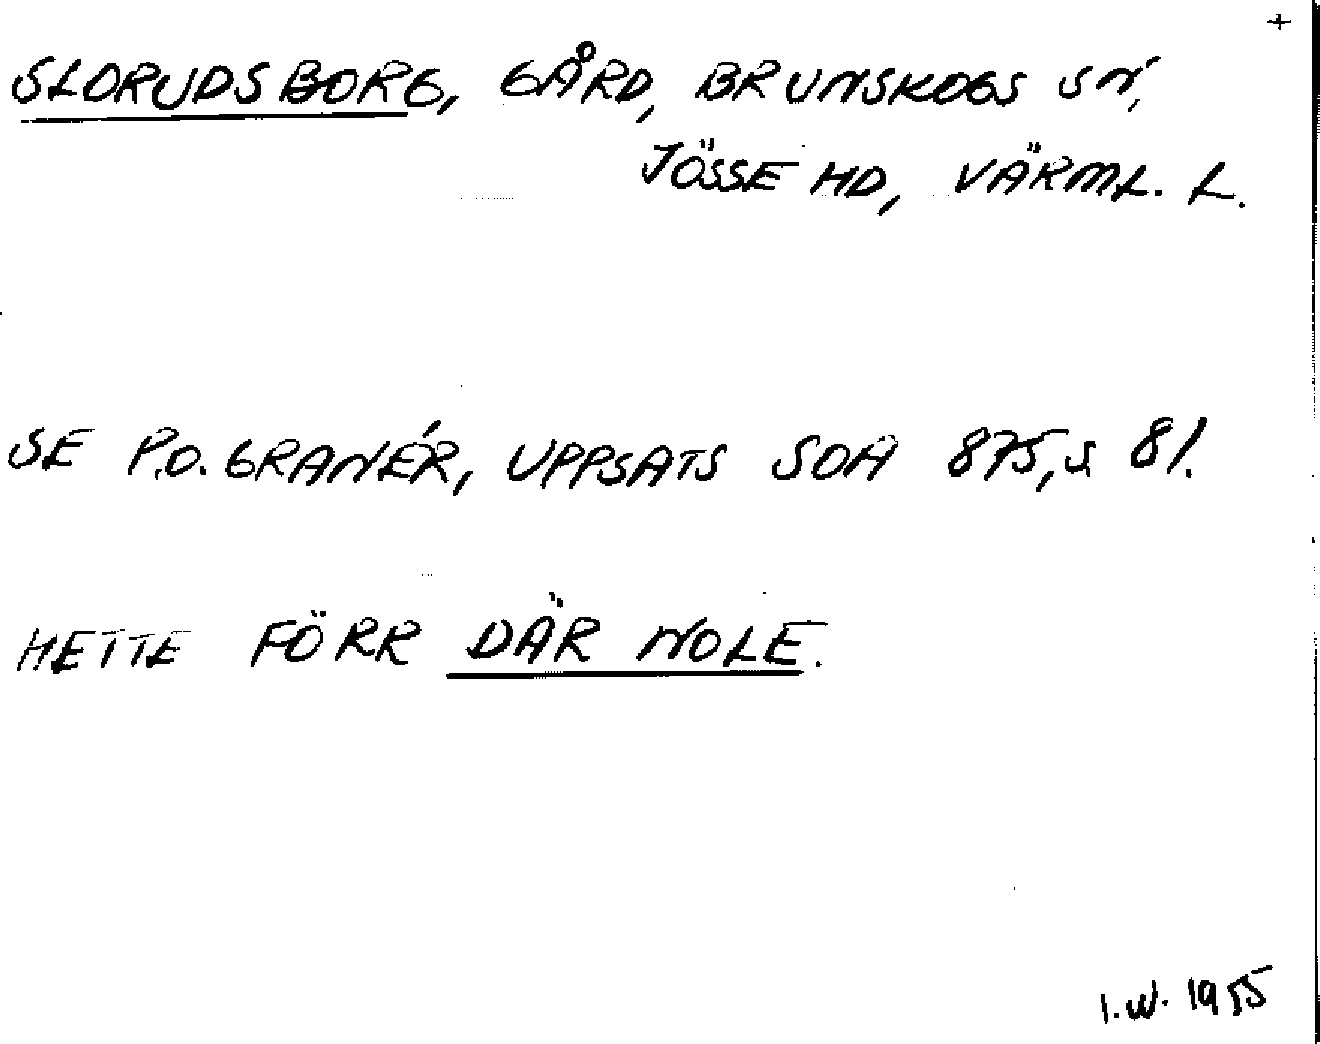 +
SLORUDSBORG, GÅRD, BRUNSKOGS SN,
JÖSSE HD, VÄRML. L.
SE P.O. GRANÉR, UPPSATS SOA 875, S 81.
HETTE FÖRR DÄR NOLE.
I.W. 1955